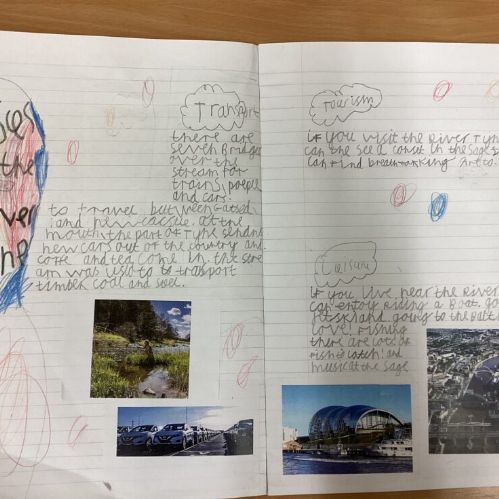 the
Transport
there are
seven Bridges
over the
stream for
trains, people
and cars.
to travel between Gatesh
and newcaslle. at the
mouth, the port of tyne sends
new cars out of the country and
coffe and tea come in. the stre
am was usto to transport
timber coal and steel.
Tourism
if you visit the River Tyne
can the see a conset in the Sage
can find breathtakking art to.
Leisure
if you live near the River
can enjoy riding a Boat. go
and going to the
love! fishing
there are lots of
fish to catch! and
music at the Sage